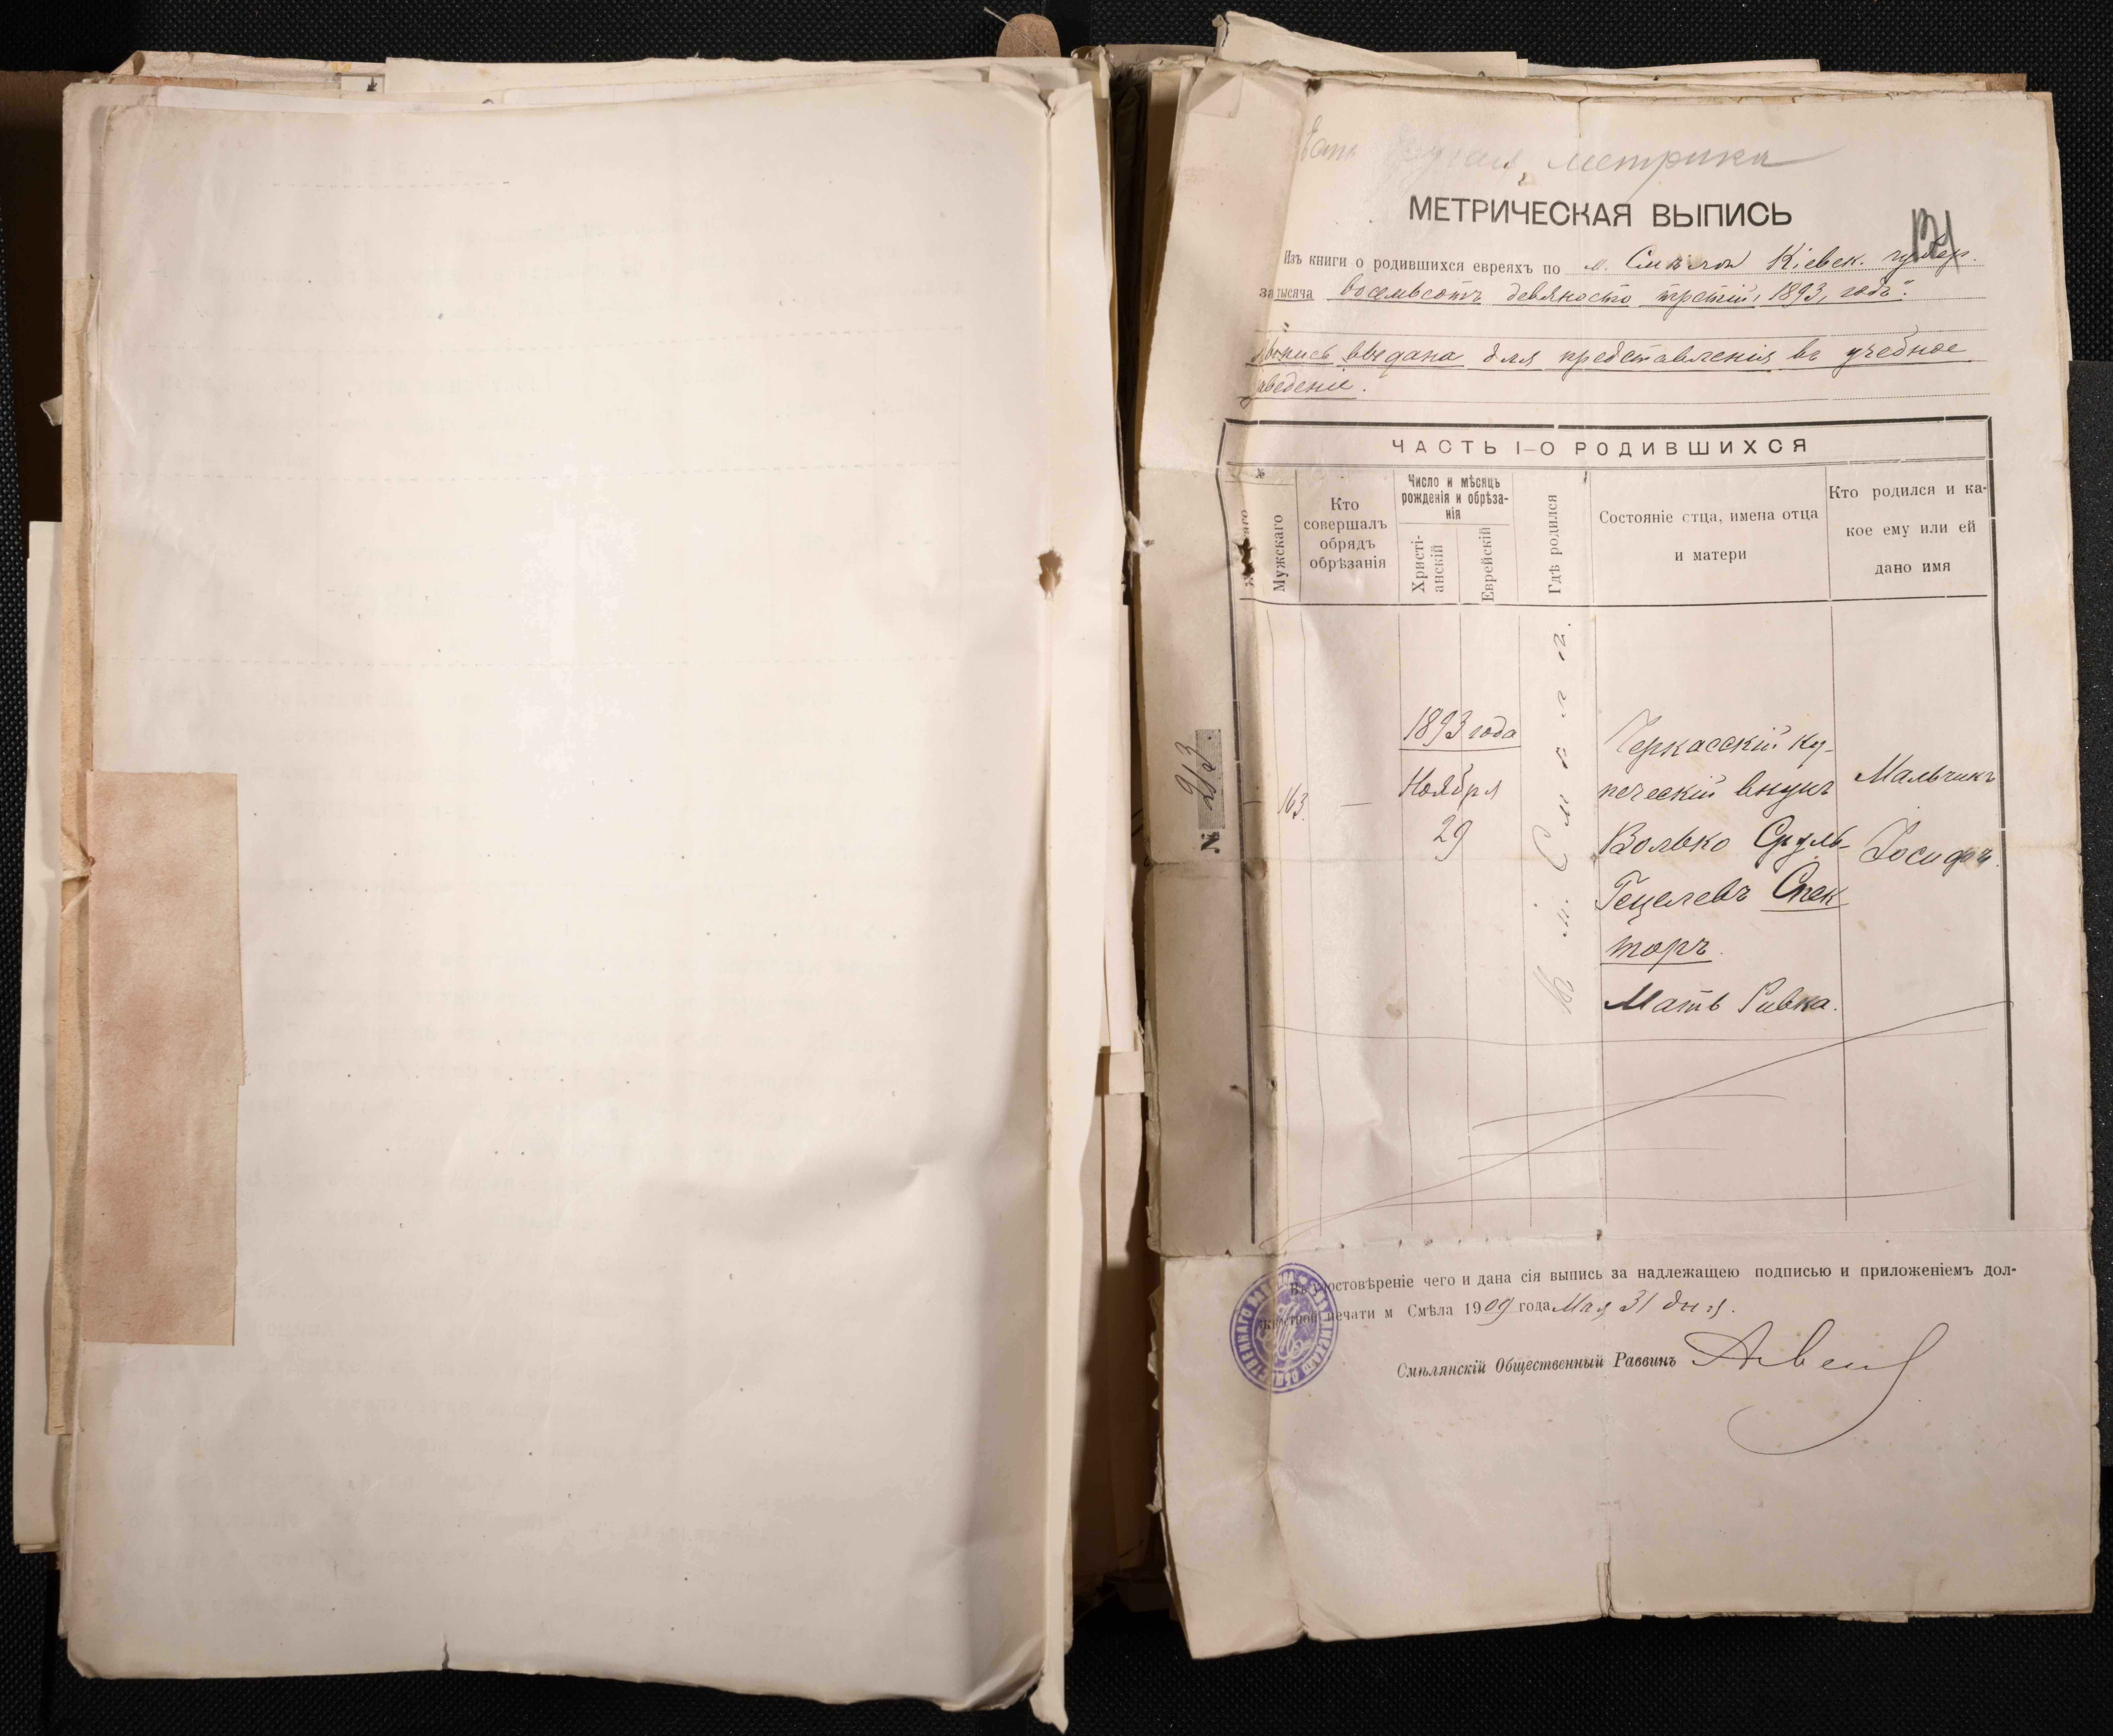 Есть другая метрика
МЕТРИЧЕСКАЯ ВЫПИСЬ
Изъ книги о родившихся евреяхъ по м. Смѣлой Кіевск. губер.
за тысяча восемьсотъ девяносто третій, 1893, годъ.
выдана для представленія въ учебное
аведеніе.
ЧАСТЬ I-О РОДИВШИХСЯ
№
Мужскаго
Кто совершалъ обрядъ обрѣзанія
Число и мѣсяцъ рожденія и обрѣза-нія
Христі-анскій
Еврейскій
Гдѣ родился
Состояніе отца, имена отца и матери
Кто родился и ка-кое ему или ей дано имя
№ 213.
163.
—
1893 года
Ноября
29
В м. Смѣлѣ.
Черкасскій ку-
печескій внукъ
Волько Сруль-
Гецелевъ Спек
торъ.
Мать Ривка.
Мальчикъ
Іосифъ.
Въ удостовѣреніе чего и дана сія выпись за надлежащею подписью и приложеніемъ дол-
жностной печати м Смѣла 1909 года Мая 31 дня.
Смѣлянскій Общественный Раввинъ